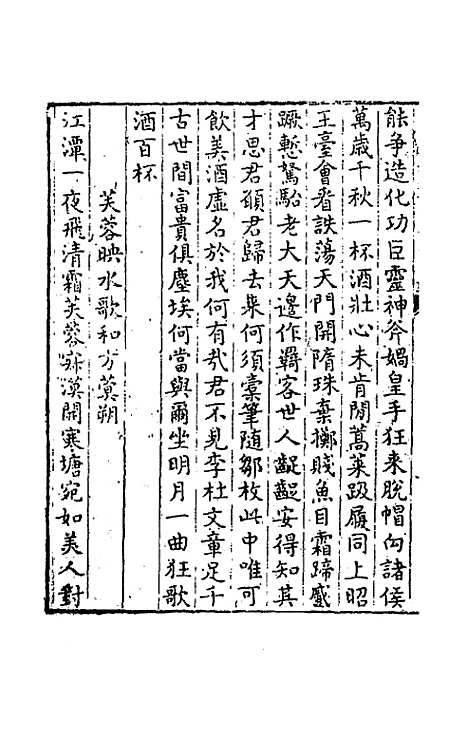 能争造化功巨靈神斧媧皇手狂来脫帽向諸侯
萬歲千秋一杯酒壯心未肯閑蒿萊趿履同上昭
王臺會看詄蕩天門開隋珠棄擲賤魚目霜蹄蹙
蹶慙駑駘老大天邊作羇客世人齪齪安得知其
才思君願君歸去來何須槖筆随鄒枚此中唯可
飲美酒虛名於我何有㢤君不見李杜文章足千
古世間富貴俱塵埃何當與爾坐明月一曲狂歌
酒百杯
芙蓉映水歌和方蓂朔
江潭一夜飛清霜芙蓉寂漠開寒塘宛如美人對